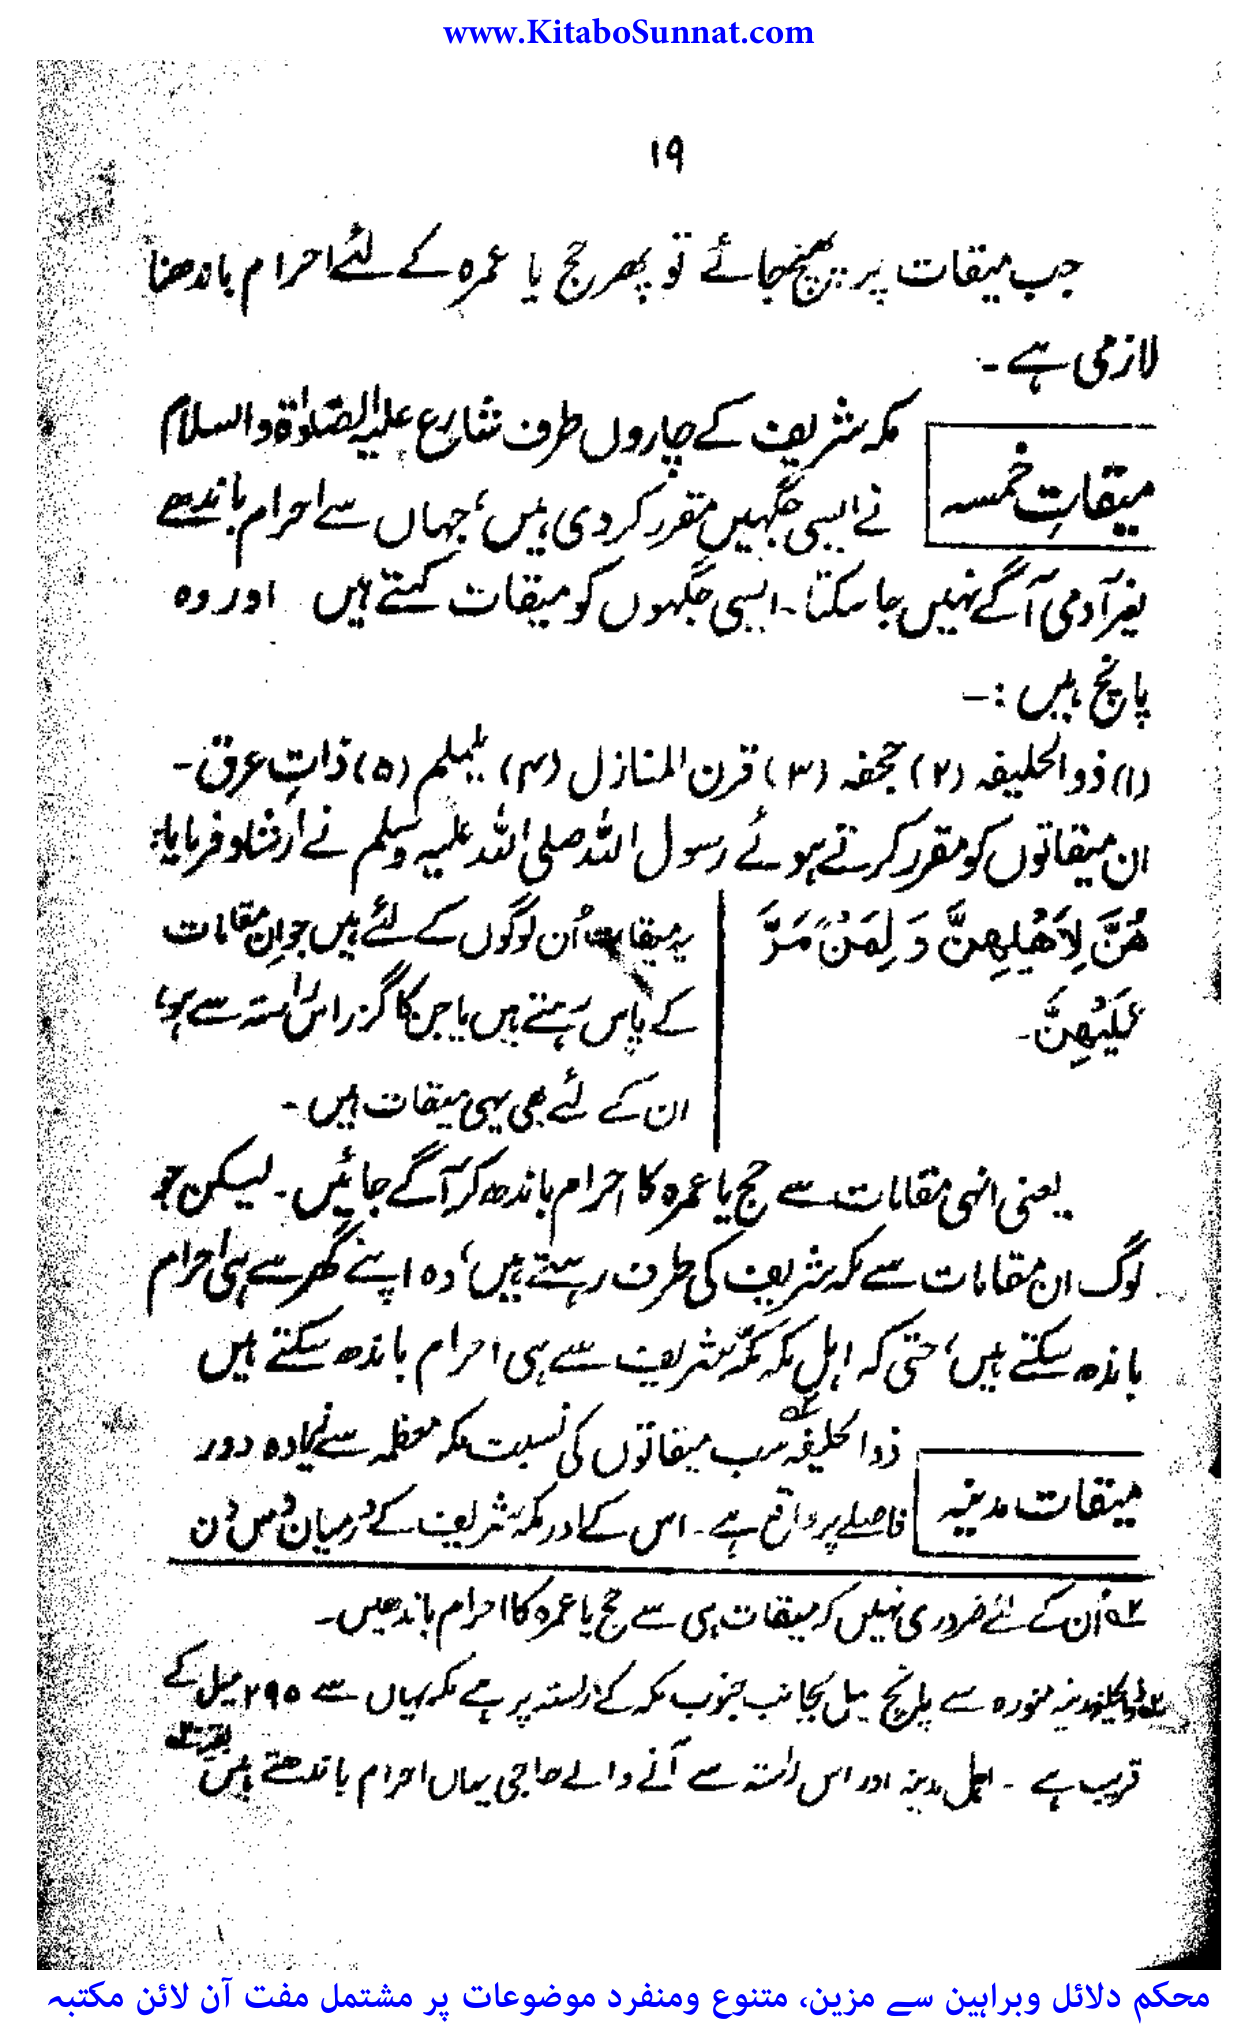 www.KitaboSunnat.com
۱۹
جب میقات پر پہنچ جائے تو پھر حج یا عمرہ کے لئے احرام باندھنا
لازمی ہے ۔
میقاتِ خمسہ
مکہ شریف کے چاروں طرف شارع علیہ الصلوٰۃ والسلام
نے ایسی جگہیں مقرر کر دی ہیں، جہاں سے احرام باندھے
بغیر آدمی آگے نہیں جا سکتا ۔ ایسی جگہوں کو میقات کہتے ہیں اور وہ
پانچ ہیں :۔
(۱) ذوالحلیفہ (۲) جحفہ (۳) قرن المنازل (۴) یلملم (۵) ذاتِ عرق ۔
ان میقاتوں کو مقرر کرتے ہوئے رسول اللہ صلی اللہ علیہ وسلم نے ارشاد فرمایا:
هُنَّ لِاَهْلِهِنَّ وَ لِمَنْ مَرَّ
عَلَيْهِنَّ ۔
یہ میقات اُن لوگوں کے لئے ہیں جو ان مقامات
کے پاس رہتے ہیں یا جن کا گزر اس راستہ سے ہو،
ان کے لئے بھی یہی میقات ہیں ۔
یعنی انہی مقامات سے حج یا عمرہ کا احرام باندھ کر آگے جائیں ۔ لیکن جو
لوگ ان مقامات سے مکہ شریف کی طرف رہتے ہیں، وہ اپنے گھر سے ہی احرام
باندھ سکتے ہیں، حتی کہ اہل مکہ مکہ شریف سے ہی احرام باندھ سکتے ہیں
میقات مدینہ
ذوالحلیفہ سب میقاتوں کی نسبت مکہ معظمہ سے زیادہ دور
فاصلے پر واقع ہے ۔ اس کے اور مکہ شریف کے درمیان دس دن
اُن کے لئے ضروری نہیں کہ میقات ہی سے حج یا عمرہ کا احرام باندھیں ۔
ذوالحلیفہ مدینہ منورہ سے پانچ میل بجانب جنوب مکہ کے راستہ پر ہے مکہ یہاں سے ۲۹۵ میل کے
قریب ہے ۔ اہل مدینہ اور اس راستہ سے آنے والے حاجی یہاں احرام باندھتے ہیں
محکم دلائل وبراہین سے مزین، متنوع ومنفرد موضوعات پر مشتمل مفت آن لائن مکتبہ